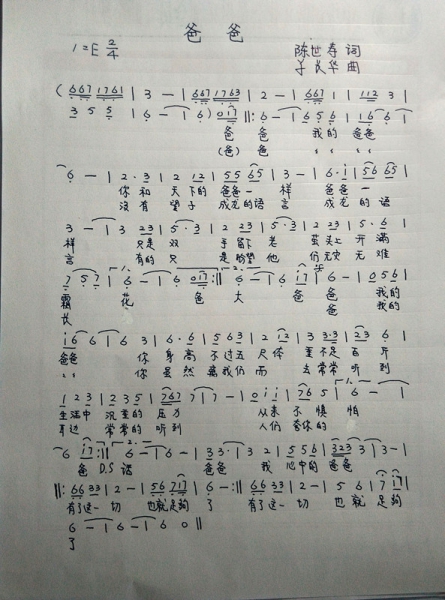 爸 爸
1=E 2/4 陈世寿 词
于长华 曲
( 667 1761 | 3 — | 667 1763 | 2 — | 667 1 | 112 3 |
3 5 5 | 6 — | 6 ) 017 ‖: 6 — | 6 656 | 166 6 |
爸 爸 我的 爸爸
(爸) 爸
6 — | 2·3 | 2 12 | 55 65 | 3 — | 6·i | 56 65 |
你 和 天下的 爸爸一 样 爸爸一
没有 望子 成龙的语 言 成龙 的 语
3 — | 3 23 | 5·3 | 2 23 | 5·3 | 2 23 | 5·6 |
样 只是 双 手留下 老 茧头上 开满
言 有的 只 是盼望 他 们无灾 无难
7 5 7 | 6 — | 6 017 :‖ 6 — | 6 17 | 6 — | 0561 |
霜 花 爸 大 爸 爸 我的
长 爸 我的
i6 6 | 6 3 | 6·6 | 5 63 | 2 12 | 3 3·3 | 23 6 |
爸爸 你 身高 不过五 尺体 重不足 百 斤
你 虽然 离我们而 去常常 听到
1 23 | 2 3 | 5·5 | 767 7 | 7 — | 0 i i | 76 5 | 6 — |
生活中 沉重的 压力 从来 不 惧 怕
耳边 常常的 听到 人们 夸你的
6 i7 :‖ 6 — | 6 — | 33·3 | 3 2 | 5561 | 3233 | 3 — |
爸 D.S 话 爸爸 我 心中的 爸爸
‖: 66 33 | 2 — | 56 717 | 6 — :‖ 66 33 | 2 — | 5 6 | 7 17 |
有了这一 切 也就 足够 了 有了这 一 切 也 就 足够
6 — | 6 — | 6 0 ‖
了